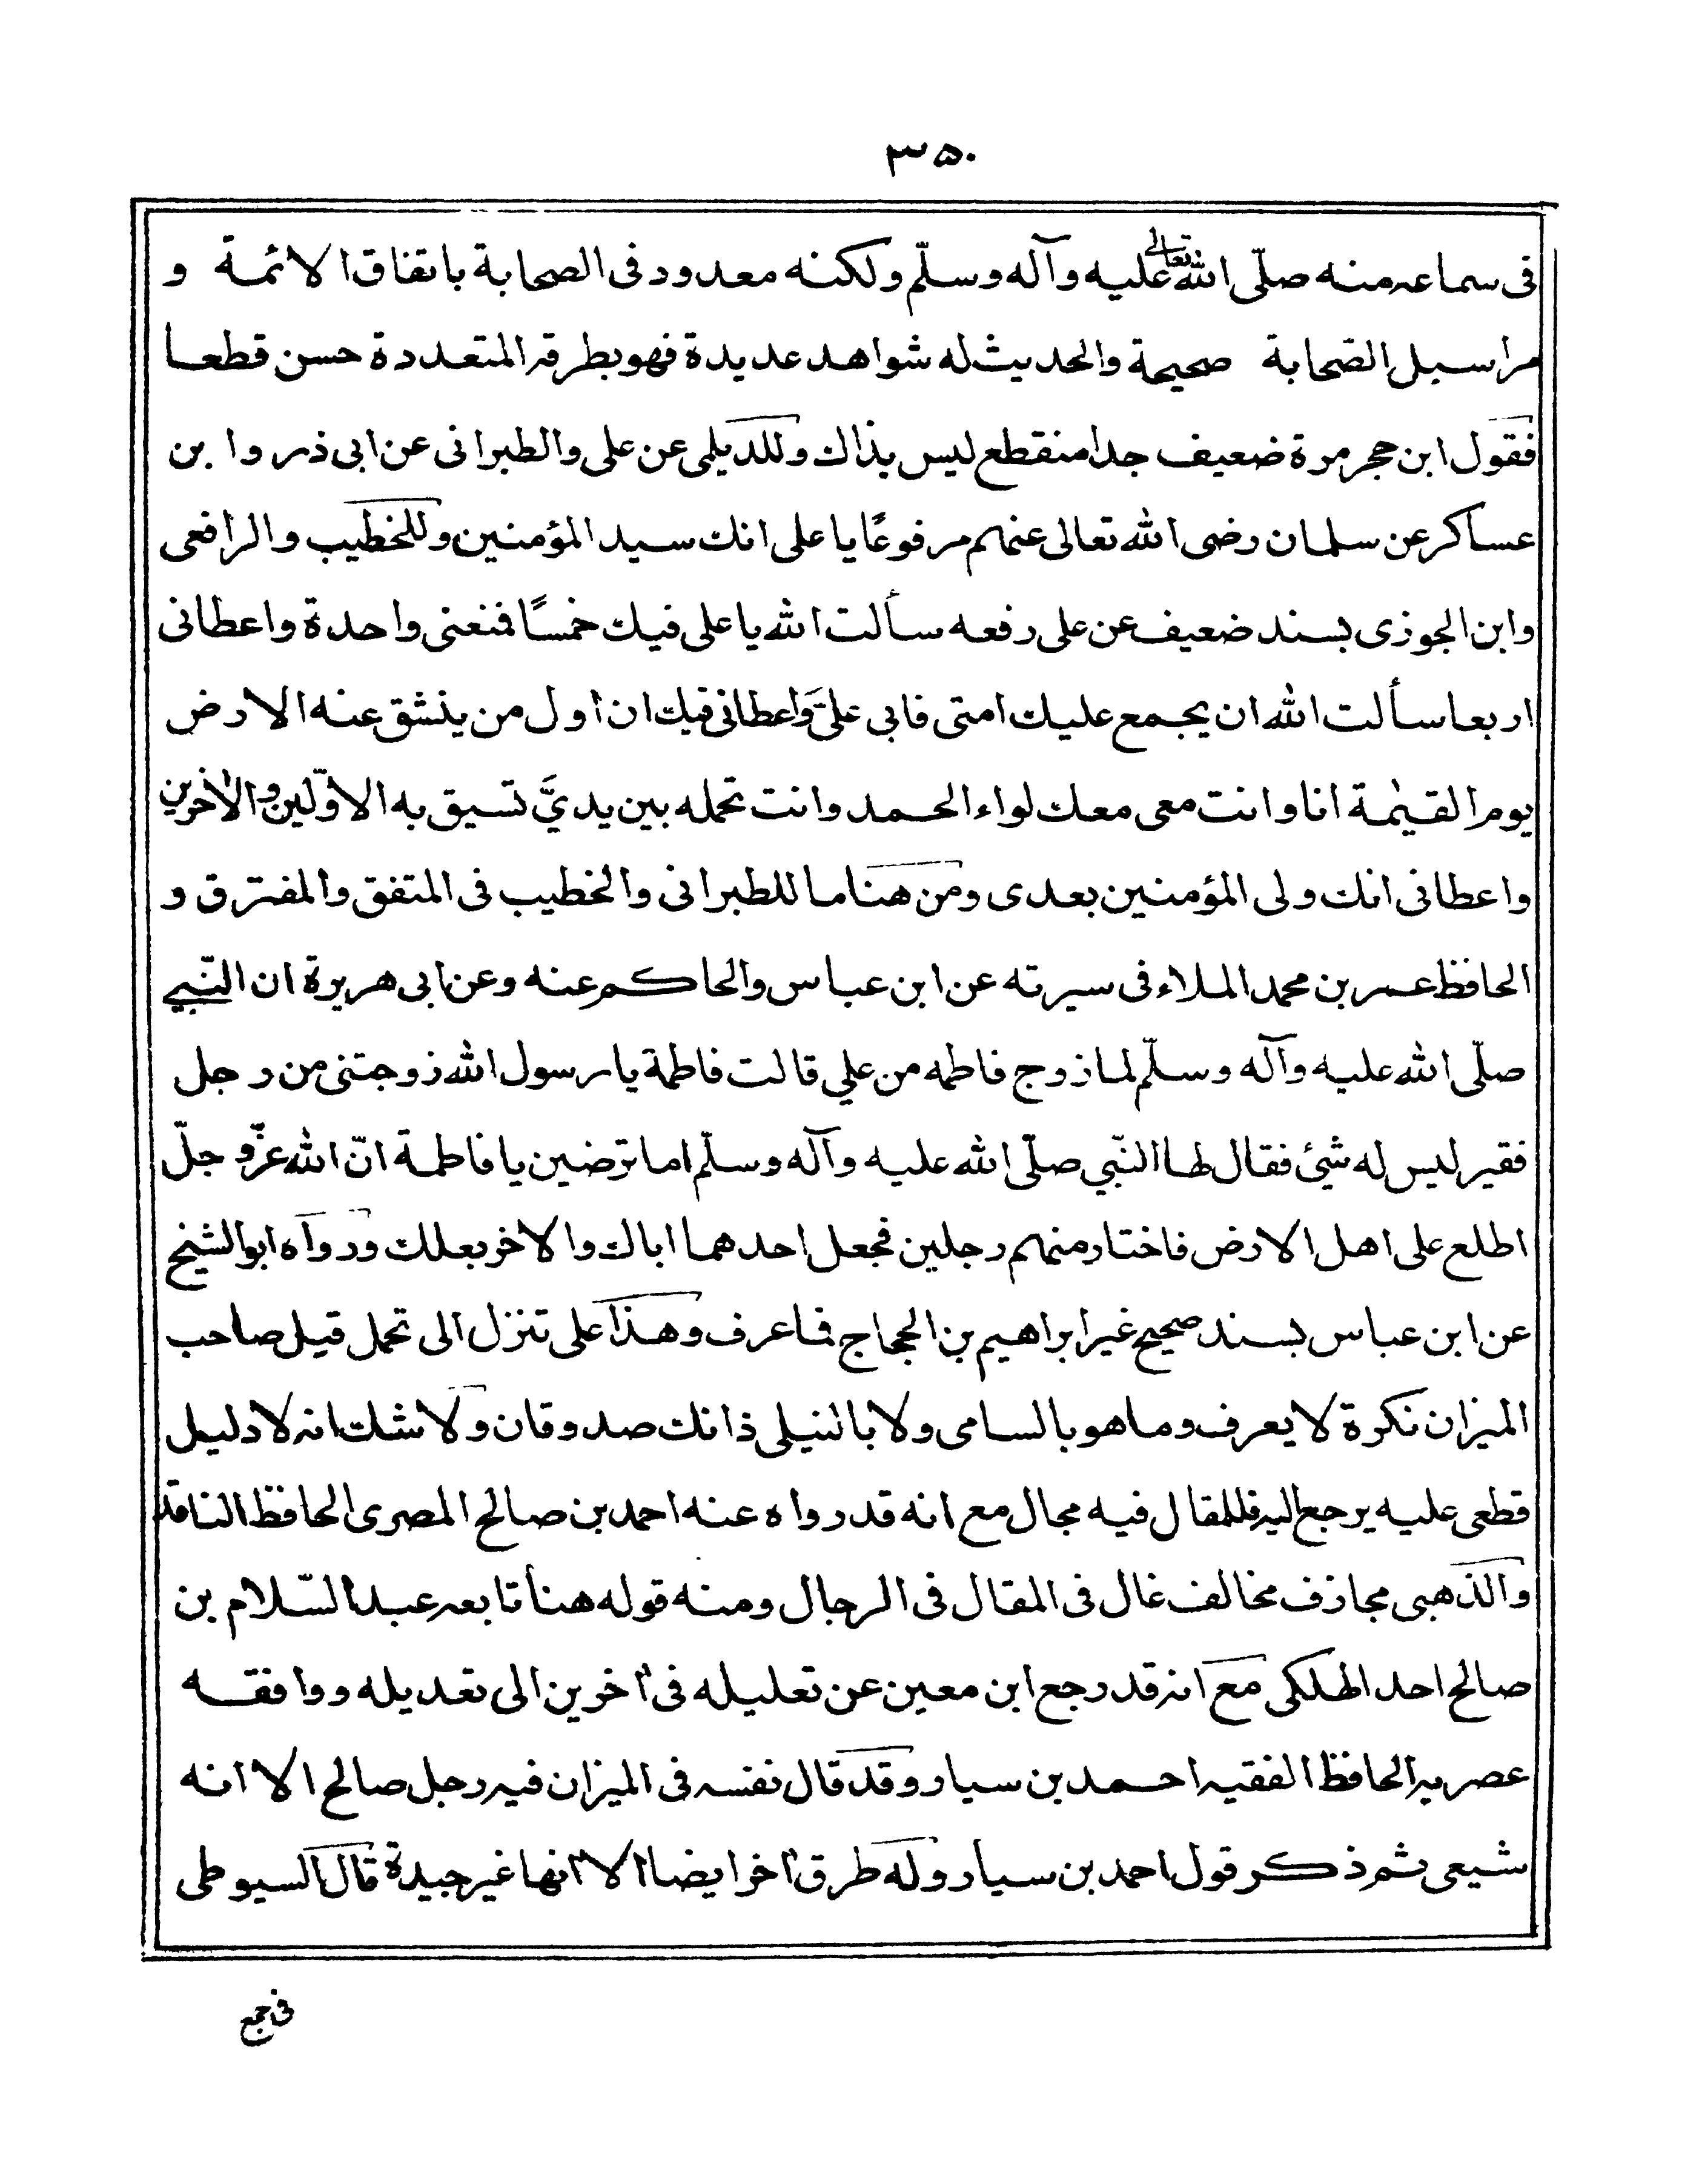 ۳۵۰
فى سماعه منه صلّى الله تعالى عليه وآله وسلّم ولكنه معدود فى الصحابة باتفاق الائمة و
مراسيل الصّحابة صحيحة والحديث له شواهد عديدة فهو بطرقه المتعددة حسن قطعا
فقول ابن حجر مرة ضعيف جدا منقطع ليس بذاك وللديلمى عن على والطبرانى عن ابى ذر وابن
عساكر عن سلمان رضى الله تعالى عنهم مرفوعًا يا على انك سيد المؤمنين وللخطيب والرافعى
وابن الجوزى بسند ضعيف عن على رفعه سألت الله يا على فيك خمسًا فمنعنى واحدة واعطانى
اربعا سألت الله ان يجمع عليك امتى فابى علىّ واعطانى فيك ان اول من ينشق عنه الارض
يوم القيٰمة انا وانت معى معك لواء الحمد وانت تحمله بين يديَّ تسيق به الاوّلين والاٰخرين
واعطانى انك ولى المؤمنين بعدى ومن هنا ما للطبرانى والخطيب فى المتفق والمفترق و
الحافظ عمر بن محمد الملاء فى سيرته عن ابن عباس والحاكم عنه وعن ابى هريرة ان النّبي
صلّى الله عليه وآله وسلّم لما زوج فاطمه من علي قالت فاطمة يا رسول الله زوجتنى من رجل
فقير ليس له شئ فقال لها النّبي صلّى الله عليه وآله وسلّم اما ترضين يا فاطمة انّ الله عزّ وجلّ
اطلع على اهل الارض فاختار منهم رجلين فجعل احدهما اباك والاخر بعلك ورواه ابوالشيخ
عن ابن عباس بسند صحيح غير ابراهيم بن الحجاج فاعرف وهذا على تنزل الى تحمل قيل صاحب
الميزان نكرة لا يعرف وما هو بالسامى ولا بالنيلى ذانك صدوقان ولا شك انه لا دليل
قطعى عليه يرجع اليه فللمقال فيه مجال مع انه قد رواه عنه احمد بن صالح المصرى الحافظ الناقد
والذهبى مجازف مخالف غال فى المقال فى الرجال ومنه قوله هنا تابعه عبد السّلام بن
صالح احد الهلكى مع انه قد رجع ابن معين عن تعليله فى اٰخرين الى تعديله ووافقه
عصريه الحافظ الفقيه احمد بن سيار وقد قال نفسه فى الميزان فيه رجل صالح الا انه
شيعى ثم ذكر قول احمد بن سيار وله طرق اٰخر ايضا الا انها غير جيدة قال السيوطى
فى جمع